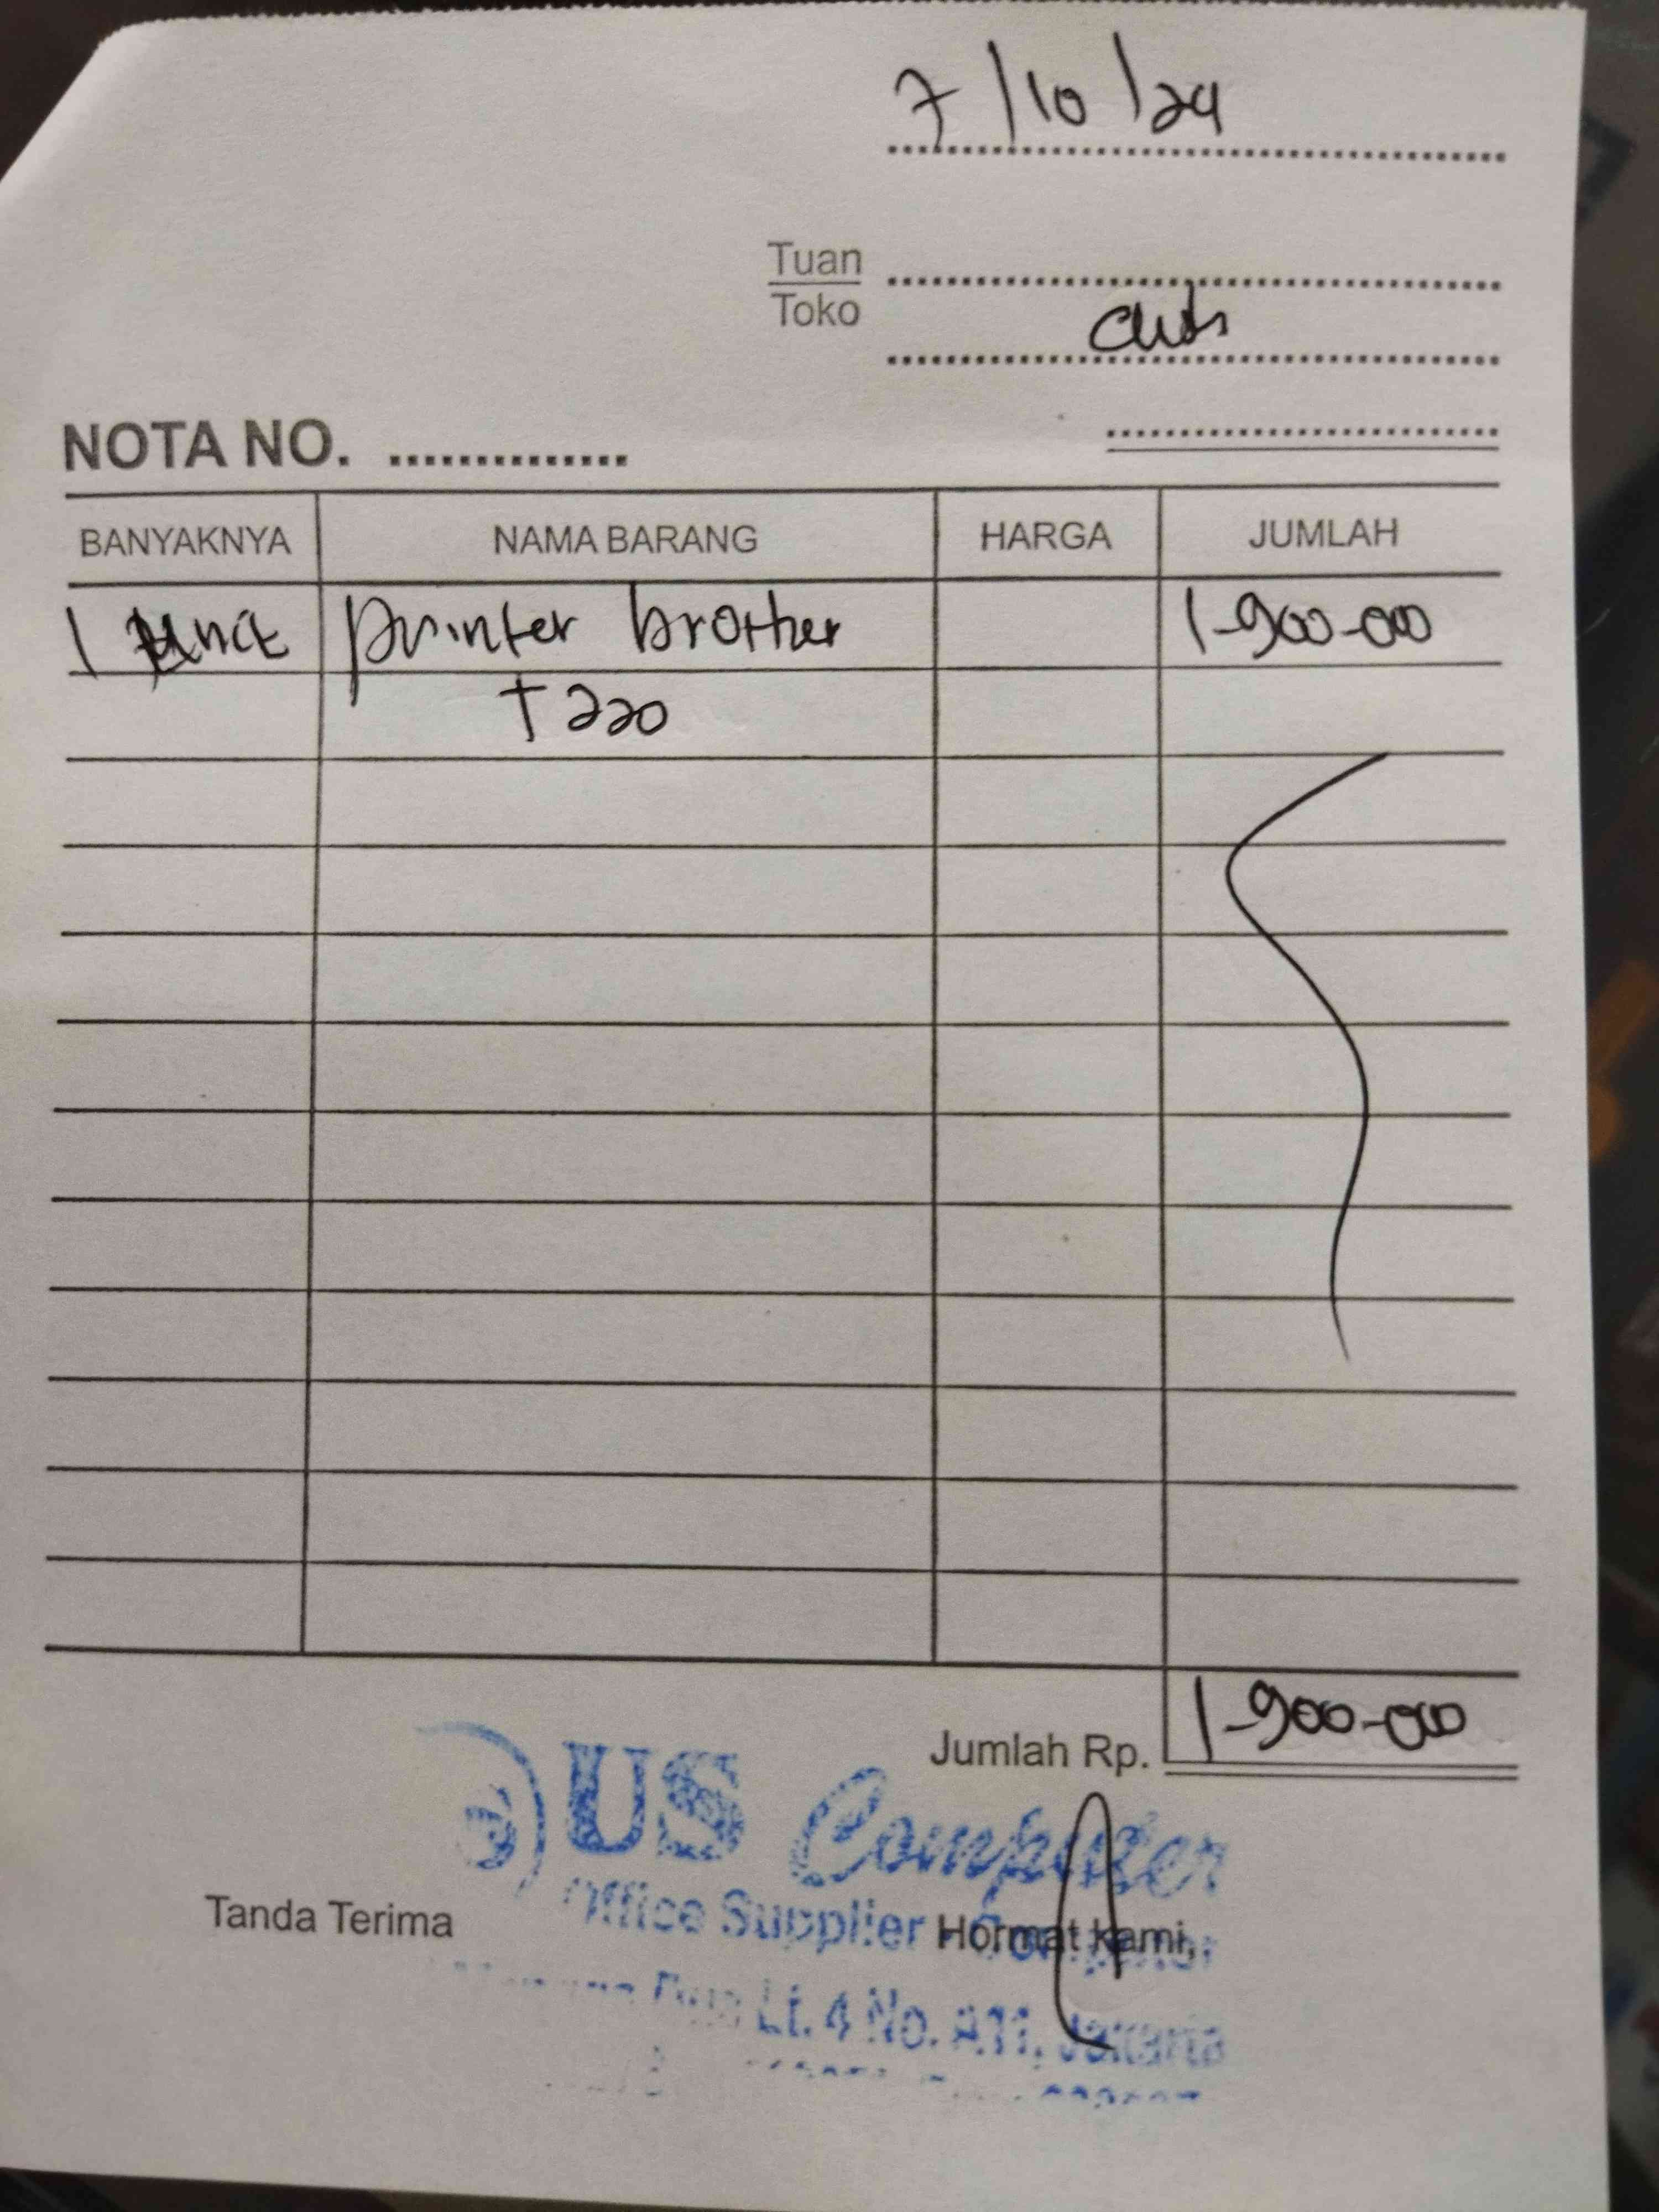 7/10/24
Tuan
Toko
NOTA NO. ..............
BANYAKNYA NAMA BARANG HARGA JUMLAH
1 unit printer brother 1-900-000
T220
Jumlah Rp. 1-900-000
US Computer
Office Supplier
Tanda Terima Hormat kami,
Lt. 4 No. A11, Jakarta